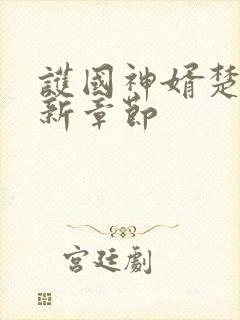 護國神婿楚
新章節
宮廷劇